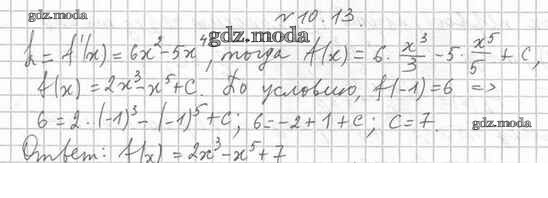 gdz.moda № 10.13.
gdz.moda
k = f'(x) = 6x² - 5x⁴, тогда f(x) = 6 · x³/3 - 5 · x⁵/5 + C,
f(x) = 2x³ - x⁵ + C. По условию, f(-1) = 6 =>
6 = 2 · (-1)³ - (-1)⁵ + C; 6 = -2 + 1 + C; C = 7. gdz.moda
Ответ: f(x) = 2x³ - x⁵ + 7
gdz.moda